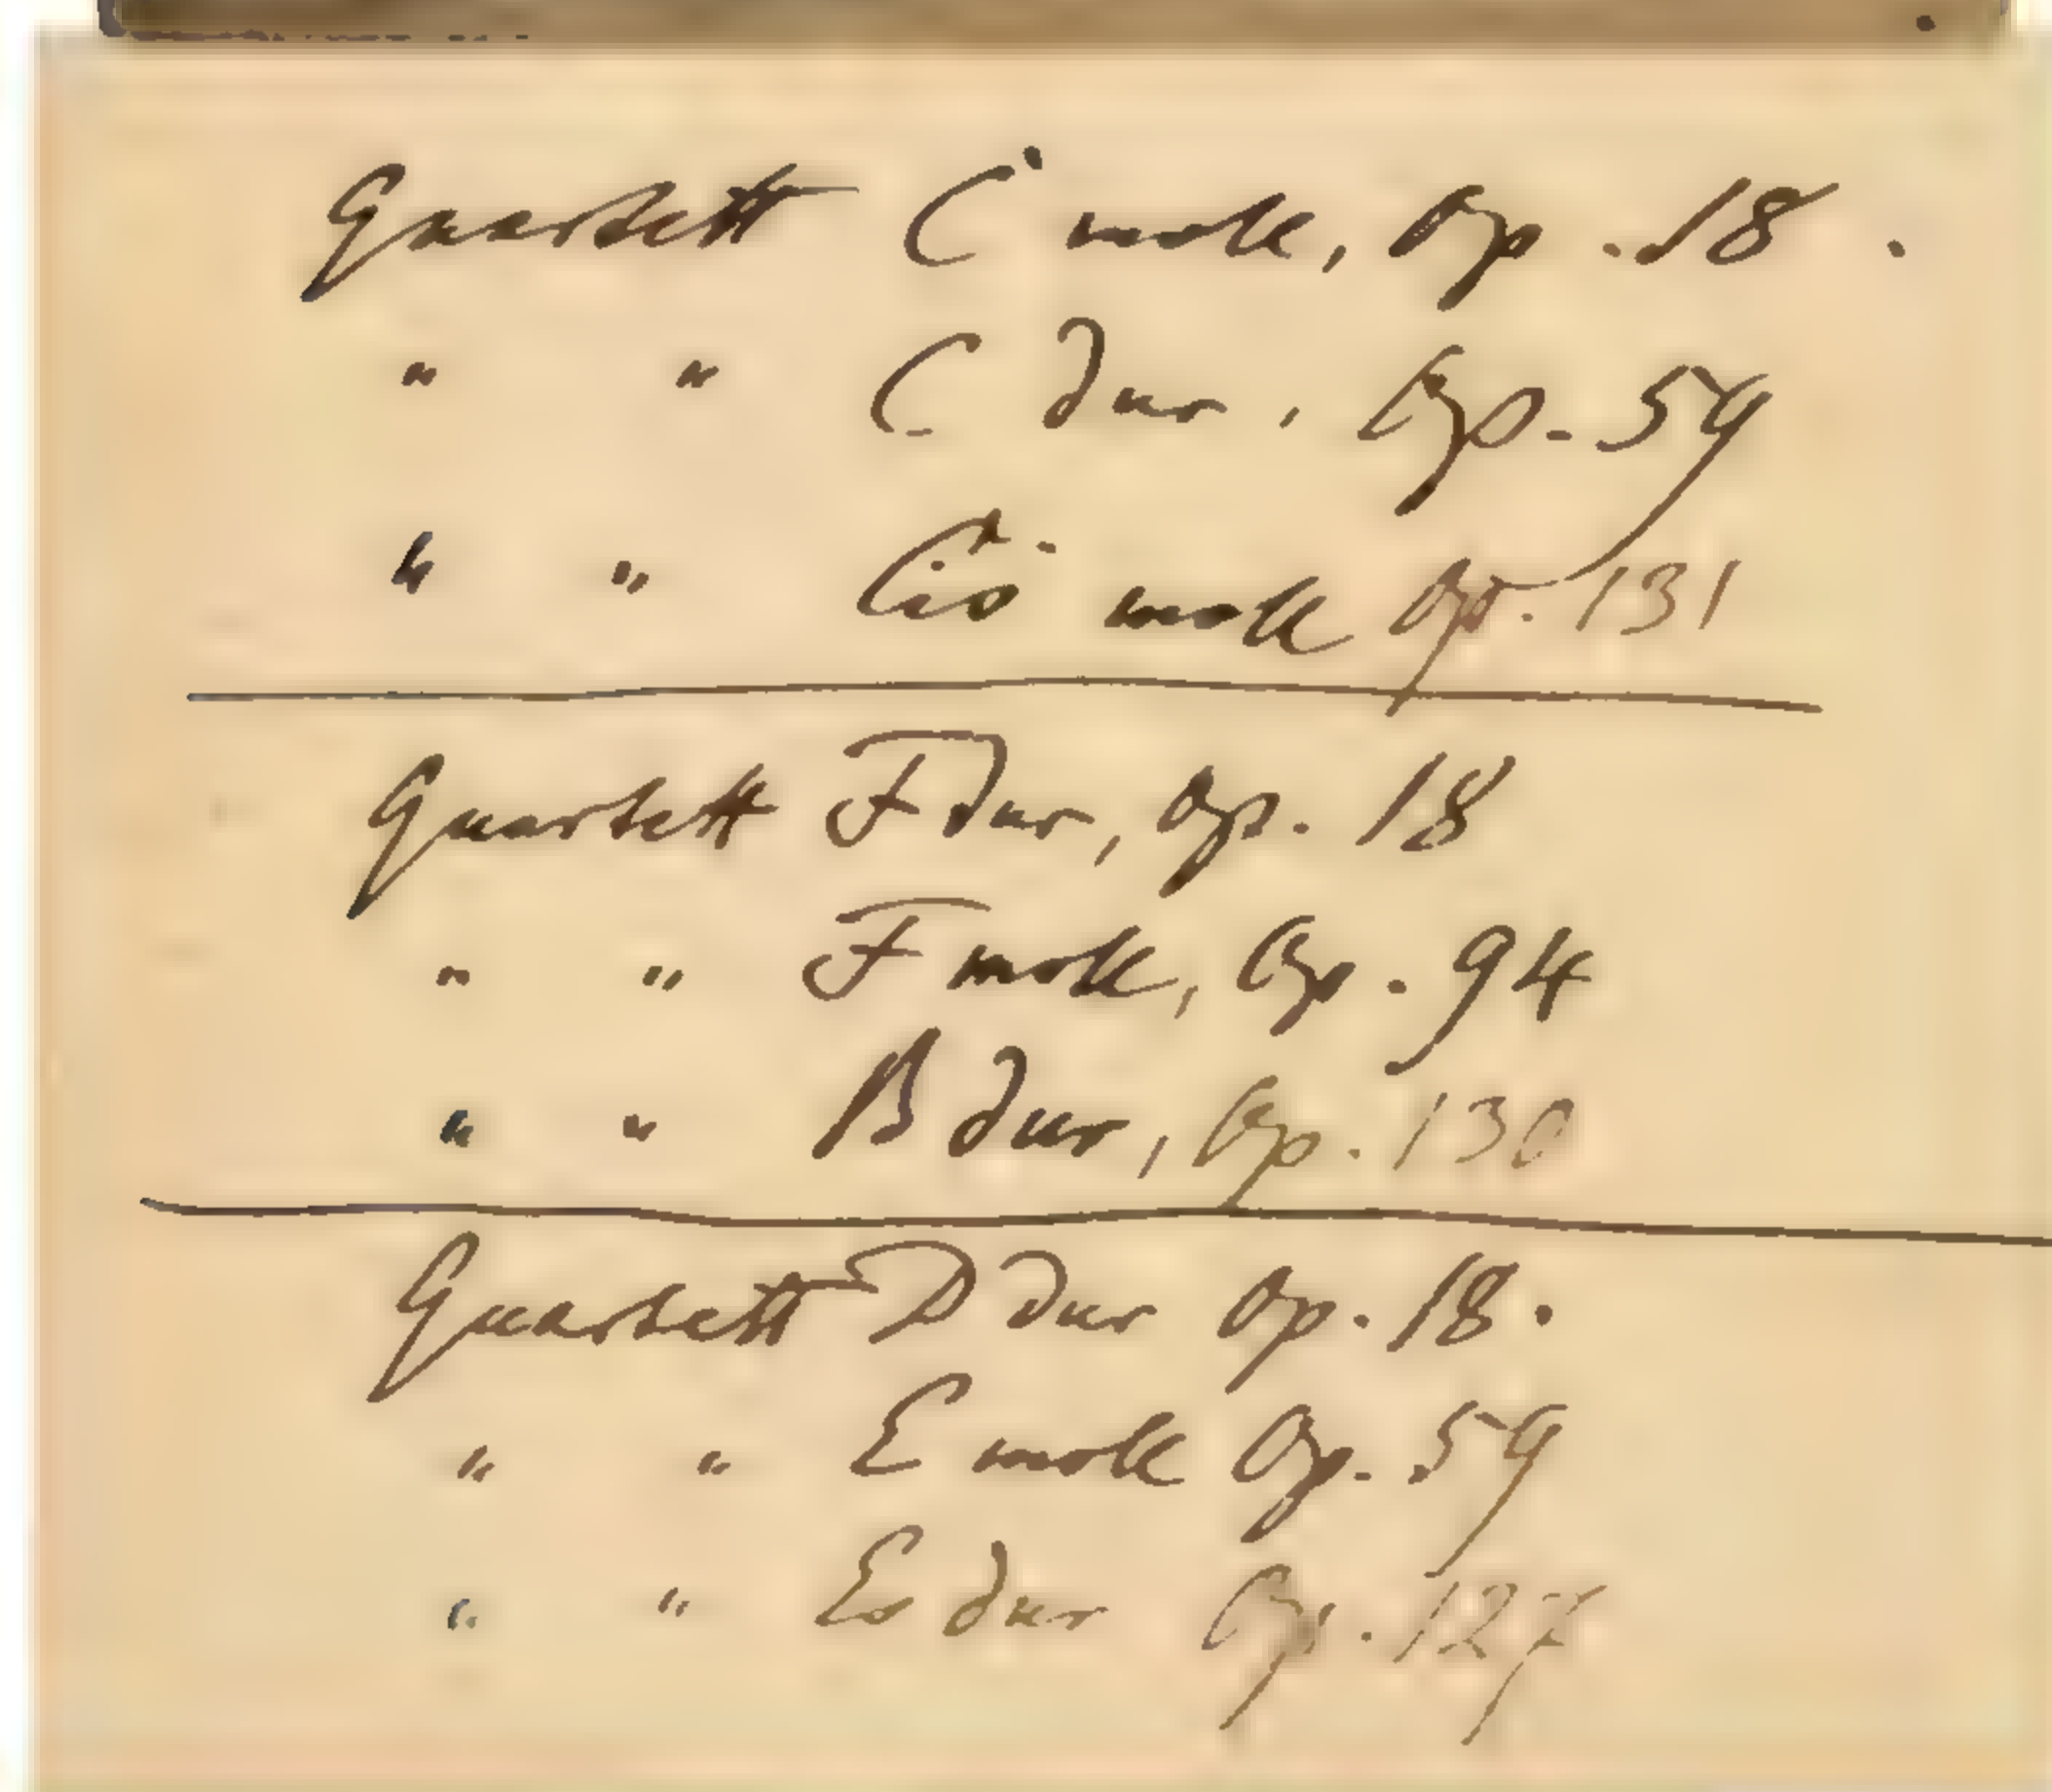 Quartett C moll, Op. 18.
" " C dur, Op. 59
" " Cis moll Op. 131
Quartett F dur, Op. 18
" " F moll, Op. 94
" " B dur, Op. 130
Quartett D dur Op. 18.
" " E moll Op. 59
" " Es dur Op. 127